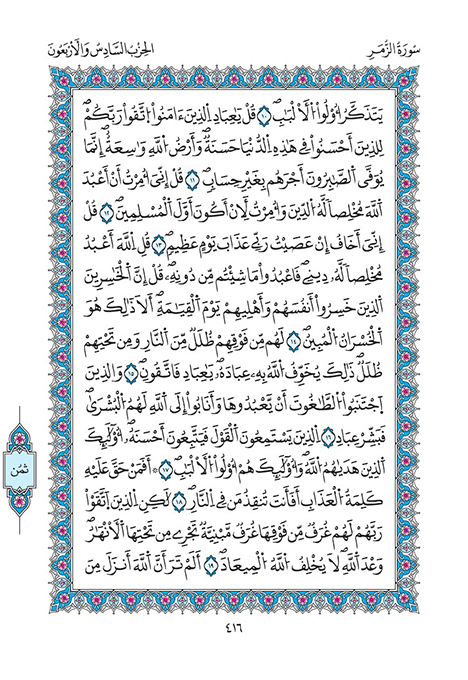 سُورَةُ الزُّمَرِ
الحِزْبُ السَّادِسُ وَالأَرْبَعُونَ
يَتَذَكَّرُ أُوْلُواْ اُلَالْبَٰبِۖ ١٠ قُلْ يَٰعِبَادِ اِلذِينَ ءَامَنُواْ اُتَّقُواْ رَبَّكُمْۖ
لِلذِينَ أَحْسَنُواْ فِي هَٰذِهِ اِلدُّنْيَا حَسَنَةٞۖ وَأَرْضُ اُللَّهِ وَٰسِعَةٌۖ اِنَّمَا
يُوَفَّى اَلصَّٰبِرُونَ أَجْرَهُم بِغَيْرِ حِسَابٖۖ ١١ قُلِ اِنِّيَ أُمِرْتُ أَنَ اَعْبُدَ
اَللَّهَ مُخْلِصاٗ لَّهُ اُلدِّينَ وَأُمِرْتُ لِأَنَ اَكُونَ أَوَّلَ اَلْمُسْلِمِينَۖ ١٢ قُلِ
اِنِّيَ أَخَافُ إِنْ عَصَيْتُ رَبِّي عَذَابَ يَوْمٍ عَظِيمٖۖ ١٣ قُلِ اِللَّهَ أَعْبُدُ
مُخْلِصاٗ لَّهُۥ دِينِي فَاعْبُدُواْ مَا شِئْتُم مِّن دُونِهِۦۖ قُلِ اِنَّ اَلْخَٰسِرِينَ
اَلذِينَ خَسِرُواْ أَنفُسَهُمْ وَأَهْلِيهِمْ يَوْمَ اَلْقِيَٰمَةِۖ أَلَا ذَٰلِكَ هُوَ
اَلْخُسْرَانُ اُلْمُبِينُۖ ١٤ لَهُم مِّن فَوْقِهِمْ ظُلَلٞ مِّنَ اَلنَّارِ وَمِن تَحْتِهِمْ
ظُلَلٞۖ ذَٰلِكَ يُخَوِّفُ اُللَّهُ بِهِۦ عِبَادَهُۥۖ يَٰعِبَادِ فَاتَّقُونِۖ ١٥ وَالذِينَ
اَجْتَنَبُواْ اُلطَّٰغُوتَ أَنْ يَّعْبُدُوهَا وَأَنَابُواْ إِلَى اَللَّهِ لَهُمُ اُلْبُشْرَىٰۖ
فَبَشِّرْ عِبَادِ ١٦ اِلذِينَ يَسْتَمِعُونَ اَلْقَوْلَ فَيَتَّبِعُونَ أَحْسَنَهُۥۖ أُوْلَٰٓئِكَ
اَلذِينَ هَدَىٰهُمُ اُللَّهُۖ وَأُوْلَٰٓئِكَ هُمُۥٓ أُوْلُواْ اُلَالْبَٰبِۖ ١٧ ۞أَفَمَنْ حَقَّ عَلَيْهِ
كَلِمَةُ اُلْعَذَابِ أَفَأَنتَ تُنقِذُ مَن فِي اِلنَّارِۖ ١٨ لَٰكِنِ اِلذِينَ اَتَّقَوْاْ
رَبَّهُمْ لَهُمْ غُرَفٞ مِّن فَوْقِهَا غُرَفٞ مَّبْنِيَّةٞ تَجْرِي مِن تَحْتِهَا اَلَانْهَٰرُۖ
وَعْدَ اَللَّهِ لَا يُخْلِفُ اُللَّهُ اُلْمِيعَادَۖ ١٩ أَلَمْ تَرَ أَنَّ اَللَّهَ أَنزَلَ مِنَ
ثمُن
٤١٦